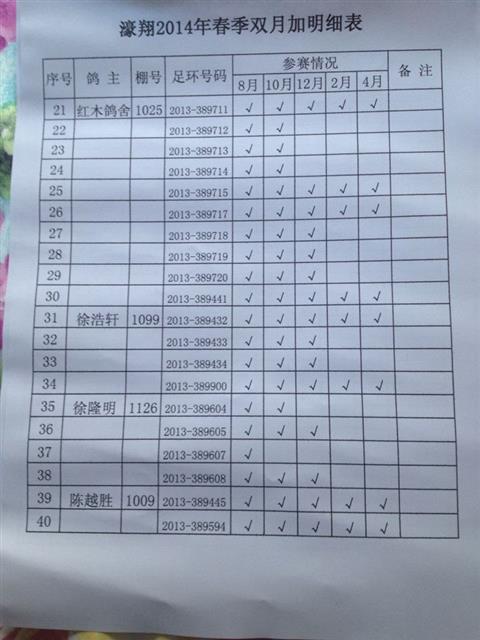 濠翔2014年春季双月加明细表
序号 鸽主 棚号 足环号码 参赛情况 备注
8月 10月 12月 2月 4月
21 红木鸽舍 1025 2013-389711 √ √ √ √ √
22 2013-389712 √ √
23 2013-389713 √ √
24 2013-389714 √ √
25 2013-389715 √ √ √ √ √
26 2013-389717 √ √ √ √ √
27 2013-389718 √ √ √
28 2013-389719 √ √ √
29 2013-389720 √ √ √
30 2013-389441 √ √ √ √ √
31 徐浩轩 1099 2013-389432 √ √ √ √ √
32 2013-389433 √ √ √
33 2013-389434 √ √ √
34 2013-389900 √ √ √ √ √
35 徐隆明 1126 2013-389604 √ √
36 2013-389605 √ √ √
37 2013-389607 √
38 2013-389608 √ √ √
39 陈越胜 1009 2013-389445 √ √ √ √ √
40 2013-389594 √ √ √ √ √